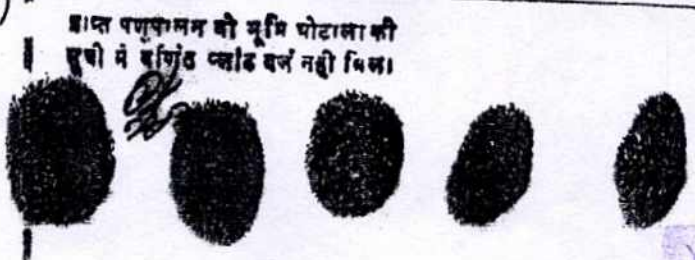 प्राप्त पशुपालन की भूमि घोटाला की
सूची में वर्णित प्लॉट दर्ज नहीं मिला